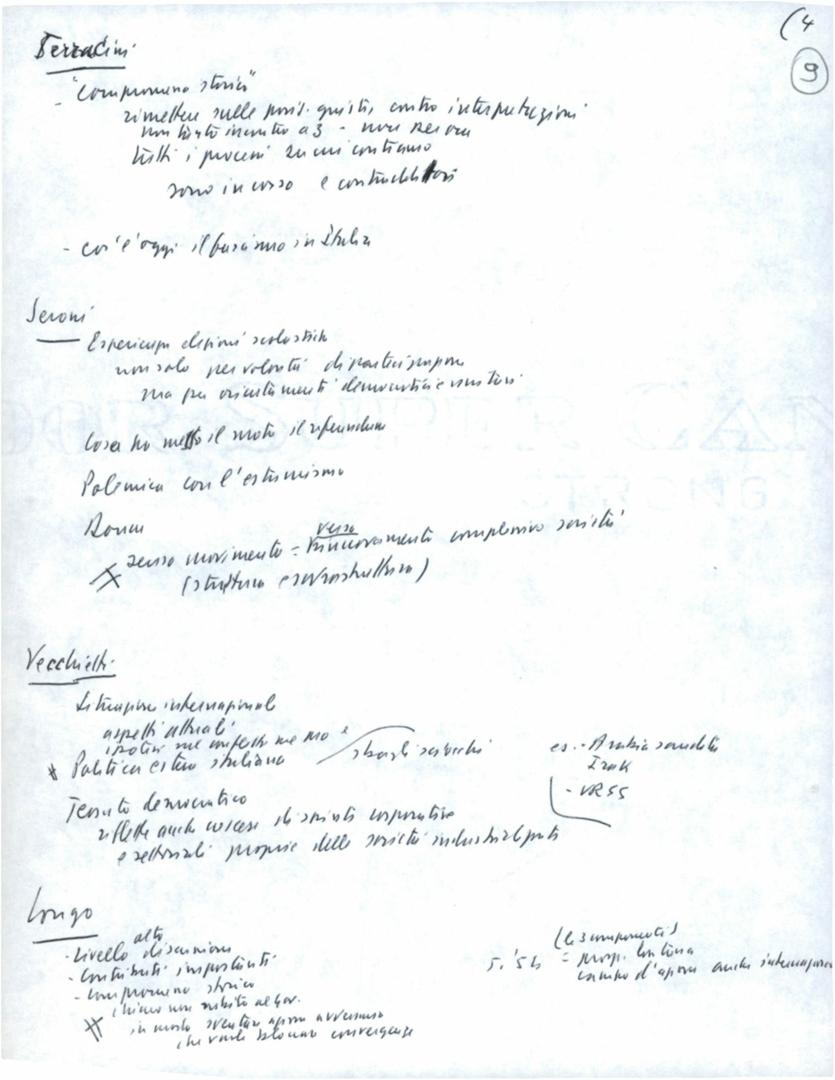 (4
9
Terracini
- "compromesso storico"
rimettere sulle posiz. giuste, contro interpretazioni
non tanto incontro a 3 - non per ora
tutti i processi su cui contiamo
sono in corso e contraddittori
- cos'è oggi il fascismo in Italia
Seroni
Esperienza elezioni scolastiche
non solo per volontà di partecipazione
ma per orientamenti democratici e unitari
Cosa ha messo in moto il referendum
Polemica con l'estremismo
Donne
senso movimento = verso rinnovamento complessivo società
(struttura e sovrastruttura)
Vecchietti
Situazione internazionale
aspetti attuali
* Politica estera italiana
es. - Arabia saudita
Irak
- URSS
Tessuto democratico
riflette anche cose di società corporative
e settoriali proprie delle società industrializzate
Longo
- Livello alto discussione
- Contributi importanti
- Compromesso storico
chiaro non subito al gov.
in modo sventare azione avversario
che vuole bloccare convergenze
(le 3 componenti)
= prop. lontana
campo d'azione anche internazion